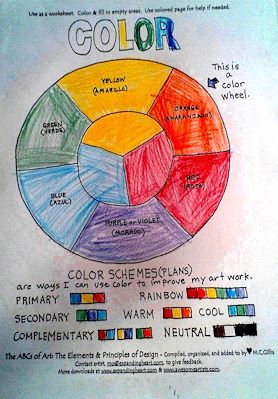 Use as a worksheet. Color & fill in empty areas. Use colored page for help if needed.
COLOR
This is
a
color
wheel.
YELLOW
(AMARILLO)
ORANGE
(ANARANJADO)
GREEN
(VERDE)
RED
(ROJO)
BLUE
(AZUL)
PURPLE or VIOLET
(MORADO)
COLOR SCHEMES(PLANS)
are ways I can use color to improve my art work.
PRIMARY RAINBOW
SECONDARY WARM COOL
COMPLEMENTARY NEUTRAL
The ABCs of Art: The Elements & Principles of Design - Compiled, organized, and added to by ♥ M.C.Gillis
Contact artist, mo@expandingheart.com, to give feedback.
More downloads at www.expandingheart.com & www.awesomeartists.com.